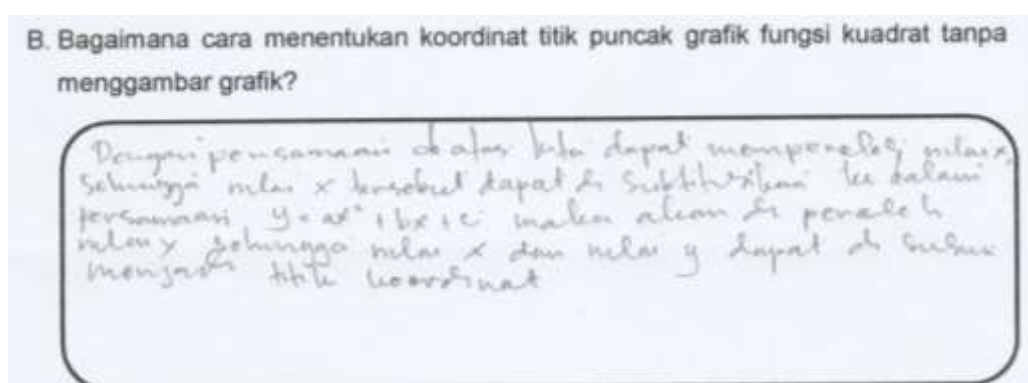 B. Bagaimana cara menentukan koordinat titik puncak grafik fungsi kuadrat tanpa
menggambar grafik?
Dengan persamaan di atas kita dapat memperoleh nilai x,
Sehingga nilai x tersebut dapat di Subtitusikan ke dalam
persamaan y = ax² + bx + c maka akan di peroleh
nilai y Sehingga nilai x dan nilai y dapat di susun
menjadi titik koordinat